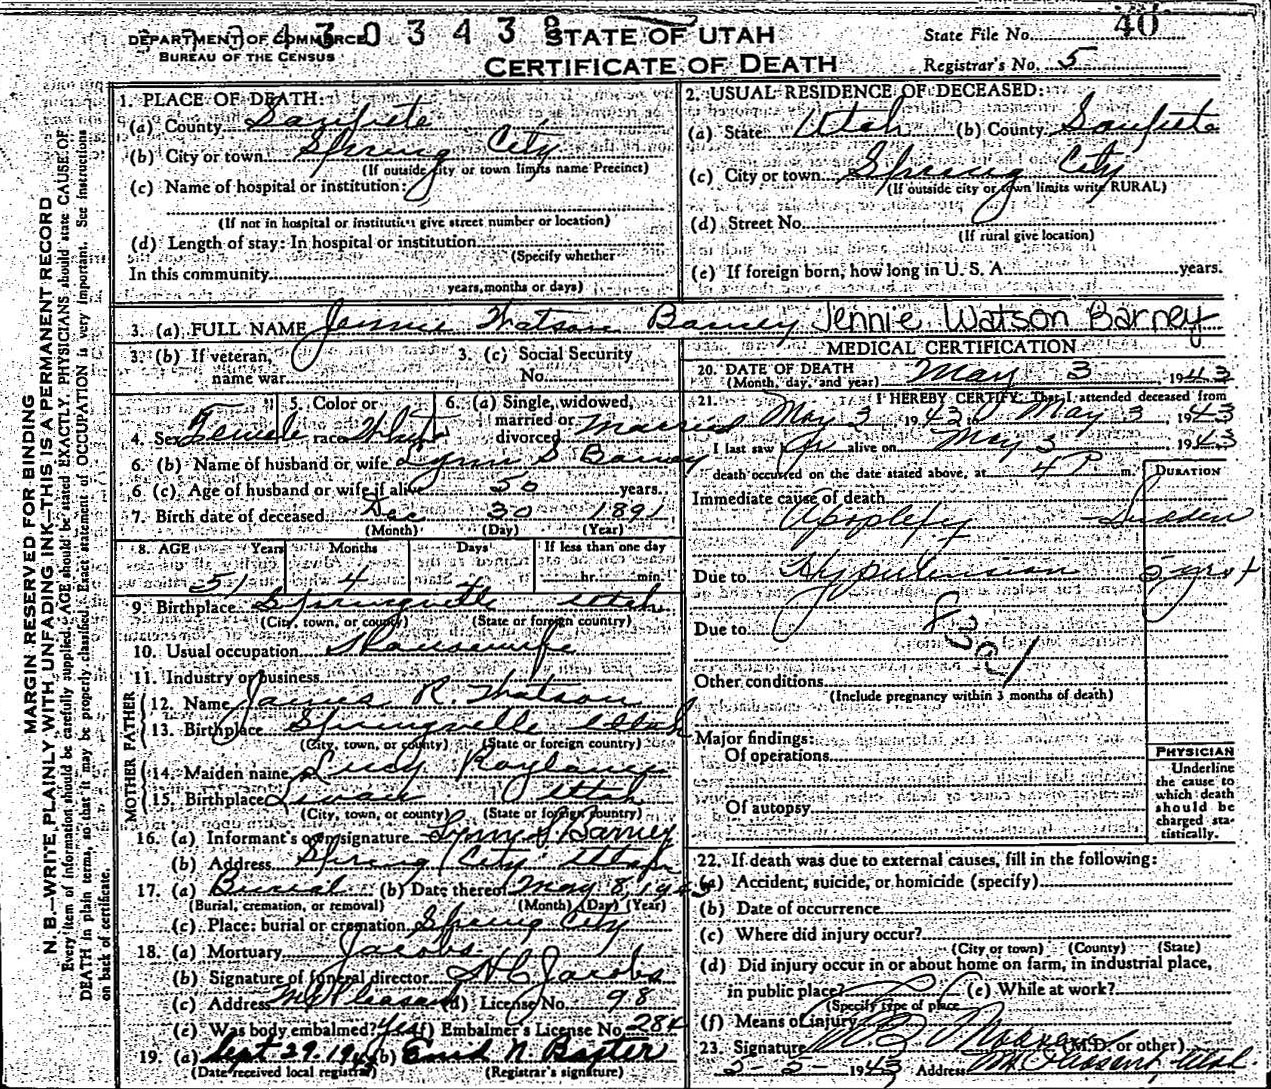 DEPARTMENT OF COMMERCE
BUREAU OF THE CENSUS
430343
STATE OF UTAH
CERTIFICATE OF DEATH
State File No. 40
Registrar's No. 5
MARGIN RESERVED FOR BINDING
N. B.—WRITE PLAINLY WITH UNFADING INK—THIS IS A PERMANENT RECORD
Every item of information should be carefully supplied. AGE should be stated EXACTLY. PHYSICIANS should state CAUSE OF
DEATH in plain terms, so that it may be properly classified. Exact statement of OCCUPATION is very important. See instructions
on back of certificate.
1. PLACE OF DEATH:
(a) County Sanpete
(b) City or town Spring City
(If outside city or town limits name Precinct)
(c) Name of hospital or institution:
(If not in hospital or institution give street number or location)
(d) Length of stay: In hospital or institution
(Specify whether
In this community
years, months or days)
2. USUAL RESIDENCE OF DECEASED:
(a) State Utah (b) County Sanpete
(c) City or town Spring City
(If outside city or town limits write RURAL)
(d) Street No.
(If rural give location)
(e) If foreign born, how long in U. S. A. years.
3. (a) FULL NAME Jennie Watson Barney Jennie Watson Barney
3. (b) If veteran,
name war
3. (c) Social Security
No.
4. Sex Female
5. Color or
race White
6. (a) Single, widowed,
married or
divorced Married
6. (b) Name of husband or wife Lynn S Barney
6. (c) Age of husband or wife if alive 50 years.
7. Birth date of deceased Dec 30 1891
(Month) (Day) (Year)
8. AGE Years Months Days If less than one day
51 4 hr. min.
9. Birthplace Springville Utah
(City, town, or county) (State or foreign country)
10. Usual occupation Housewife
11. Industry or business
FATHER
12. Name James R. Watson
13. Birthplace Springville Utah
(City, town, or county) (State or foreign country)
MOTHER
14. Maiden name Roylance
15. Birthplace Utah
(City, town, or county) (State or foreign country)
16. (a) Informant's own signature Lynn S Barney
(b) Address Spring City Utah
17. (a) Burial (b) Date thereof May 8, 194
(Burial, cremation, or removal) (Month) (Day) (Year)
(c) Place: burial or cremation Spring City
18. (a) Mortuary Jacobs
(b) Signature of funeral director H C Jacobs
(c) Address Mt Pleasant (d) License No. 98
(e) Was body embalmed? Yes (f) Embalmer's License No. 284
19. (a) Sept 29. 194 (b) Enid N. Baxter
(Date received local registrar) (Registrar's signature)
MEDICAL CERTIFICATION
20. DATE OF DEATH
(Month, day, and year) May 3, 1943
21. I HEREBY CERTIFY That I attended deceased from
May 3, 1943 to May 3, 1943
I last saw alive on May 3 1943
death occurred on the date stated above, at 4 P m.
DURATION
Immediate cause of death
Apoplexy Sudden
Due to Hypertension 5 yrs +
Due to
83a1
Other conditions
(Include pregnancy within 3 months of death)
Major findings:
Of operations
Of autopsy
PHYSICIAN
Underline
the cause to
which death
should be
charged sta-
tistically.
22. If death was due to external causes, fill in the following:
(a) Accident, suicide, or homicide (specify)
(b) Date of occurrence
(c) Where did injury occur?
(City or town) (County) (State)
(d) Did injury occur in or about home on farm, in industrial place,
in public place? (e) While at work?
(Specify type of place
(f) Means of injury
23. Signature (M.D. or other)
5-5-1943 Address Mt Pleasant, Utah